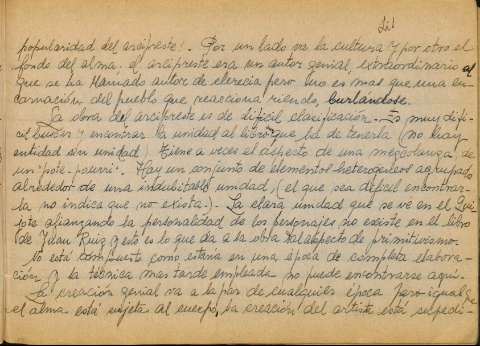 Lit
popularidad del arcipreste!. Por un lado va la cultura y por otro el
fondo del alma. El arcipreste era un autor genial, extraordinario al
que se ha llamado autor de clerecia pero no es mas que una en-
carnación del pueblo que reacciona riendo, burlándose.
La obra del arcipreste es de dificil clasificación. Es muy difi-
cil buscar y encontrar la unidad al libro que ha de tenerla (no hay
entidad sin unidad). Tiene a veces el aspecto de una mezcolanza de
un "pote-pourri". Hay un conjunto de elementos heterogeneos agrupados
alrededor de una indubitable unidad, (el que sea dificil encontrar-
la no indica que no exista.). La clara unidad que se ve en el Qui-
jote afianzando la personalidad de los personajes, no existe en el libro
de Juan Ruiz y esto es lo que da a la obra tal aspecto de primitivismo.
No está compuesto como estaria en una epoca de completa elabora-
ción y la técnica mas tarde empleada no puede encontrarse aqui.
La creación genial va a la par de cualquier época pero igual que
el alma está sujeta al cuerpo, la creación del artista está supedi-